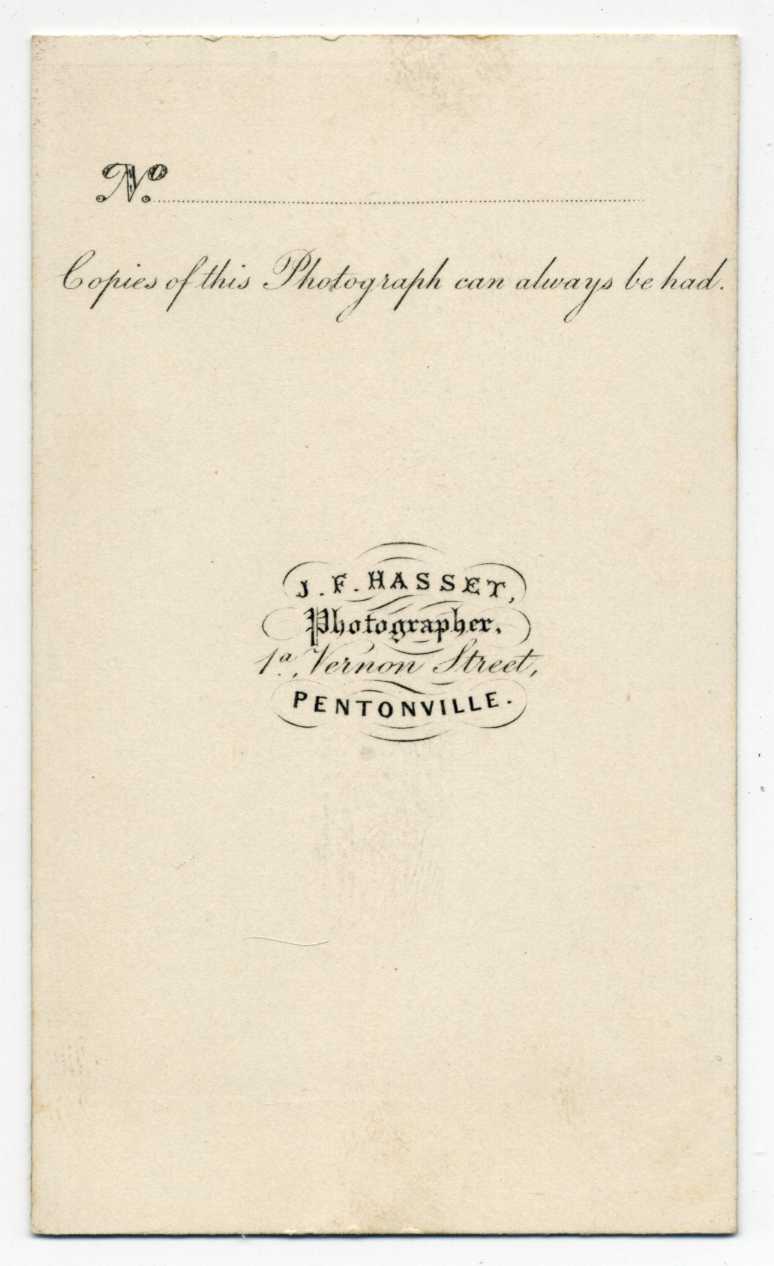 No.
Copies of this Photograph can always be had.
J. F. HASSET,
Photographer,
1a, Vernon Street,
PENTONVILLE.